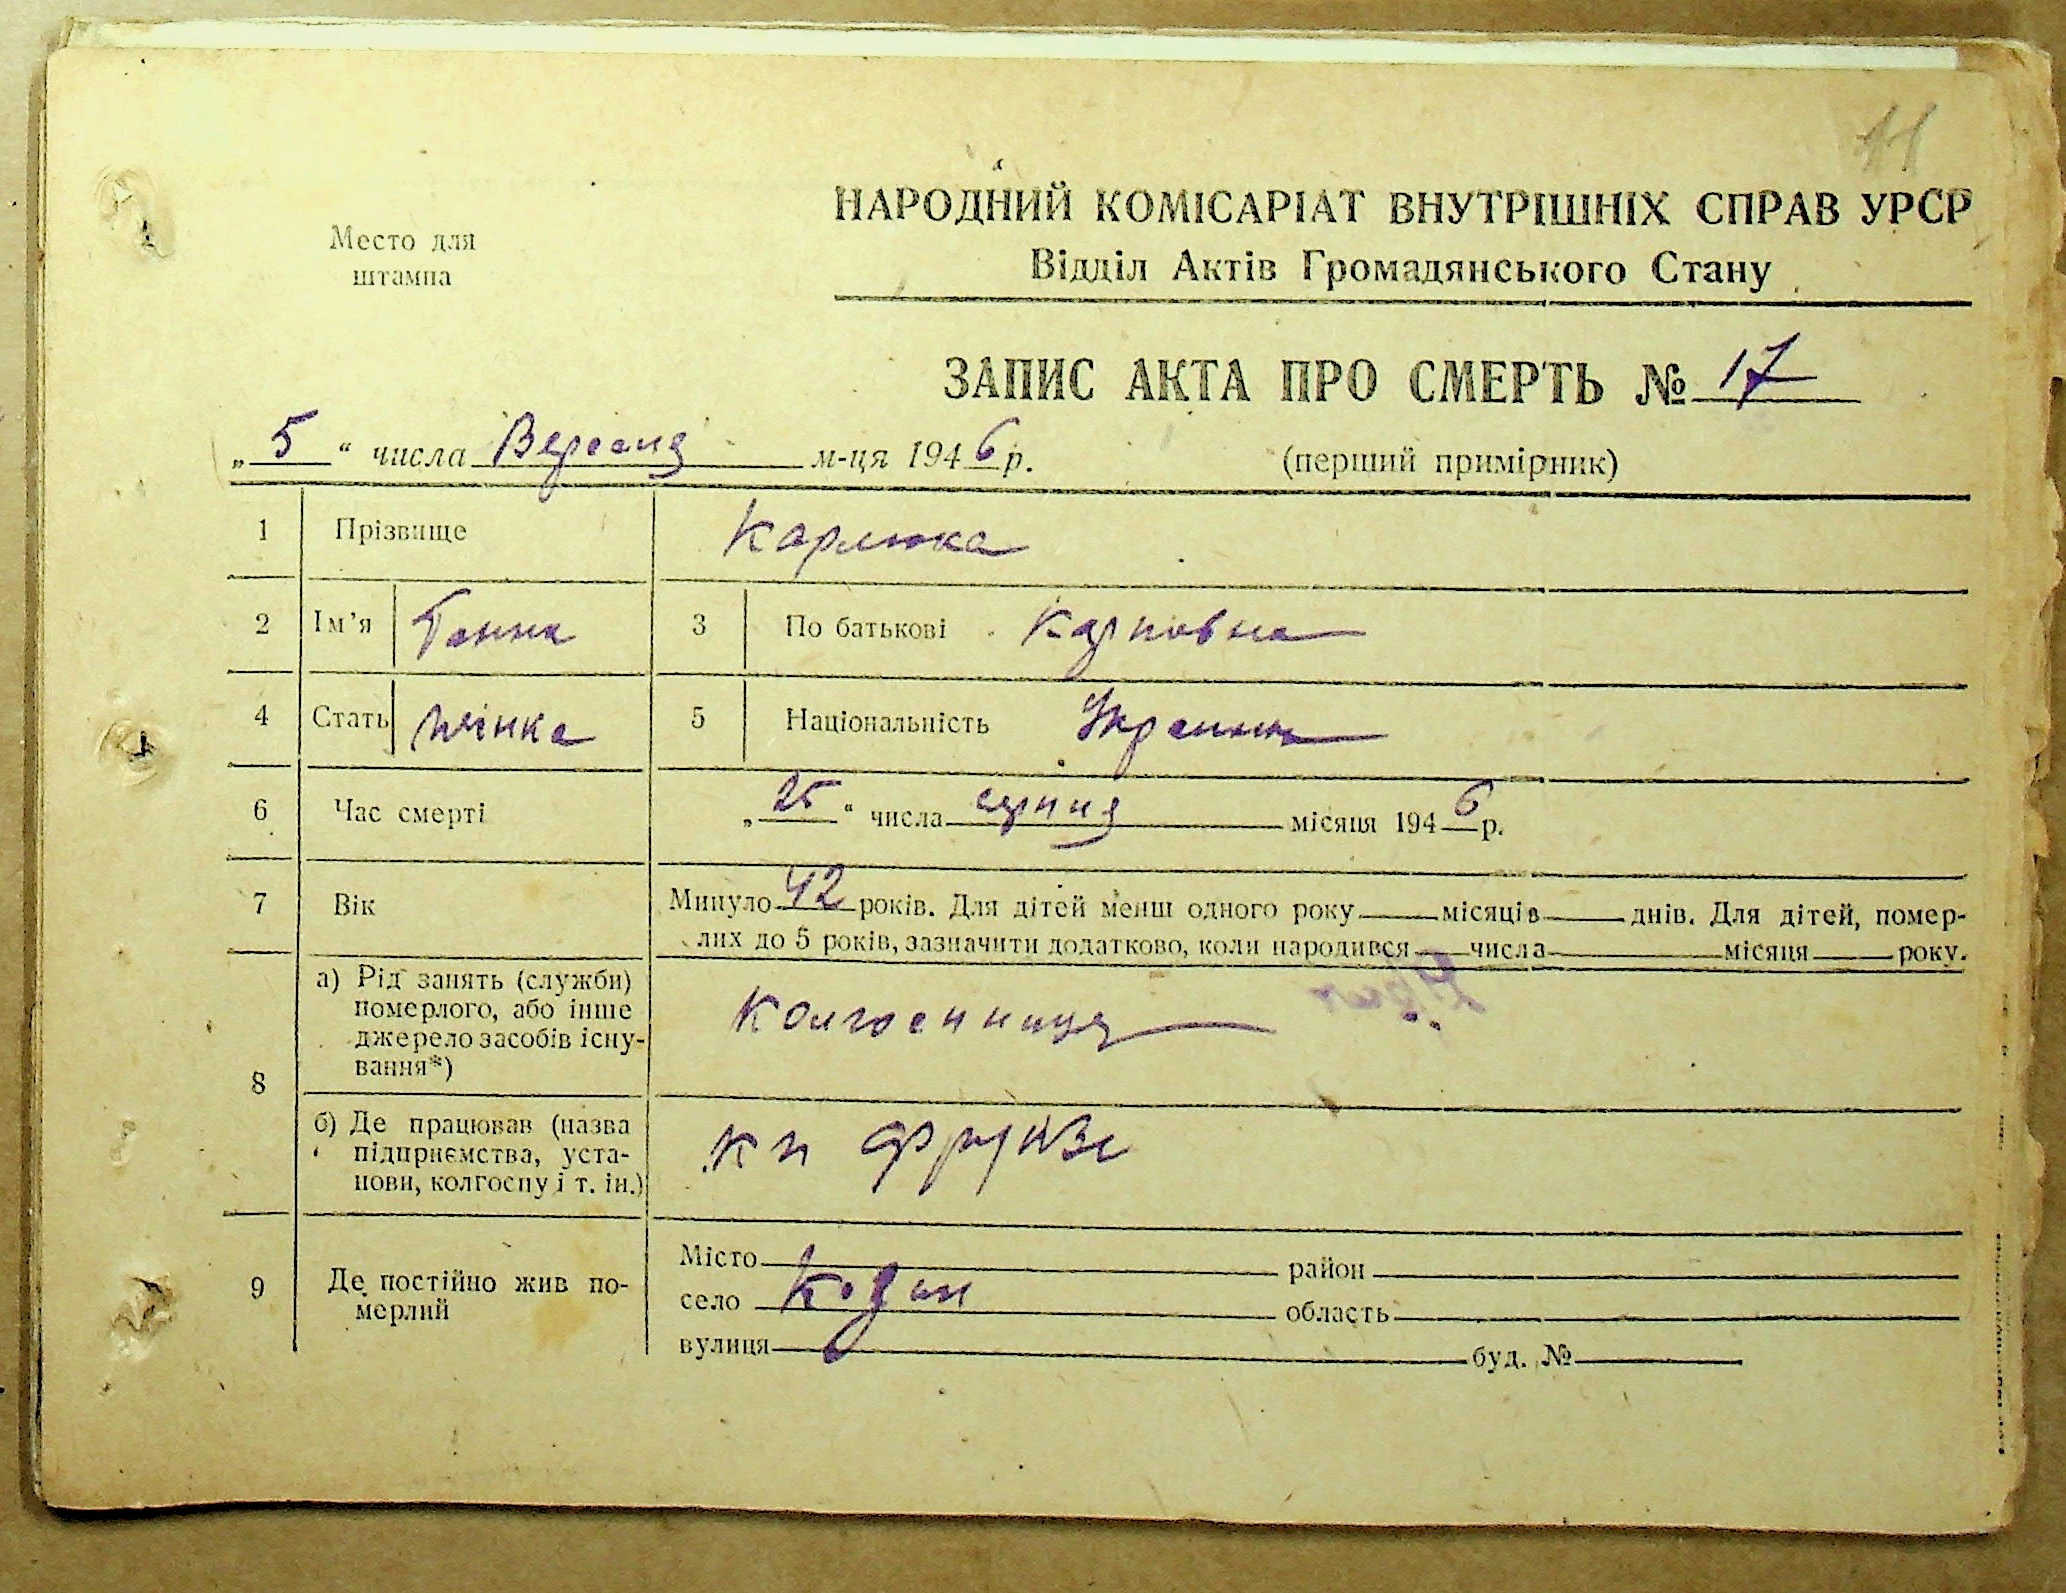 11
НАРОДНИЙ КОМІСАРІАТ ВНУТРІШНІХ СПРАВ УРСР
Место для
штампа
Відділ Актів Громадянського Стану
ЗАПИС АКТА ПРО СМЕРТЬ № 17
„ 5 “ числа Вересня м-ця 1946 р.
(перший примірник)
1 Прізвище Карлюка
2 Ім'я Ганна 3 По батькові Карповна
4 Стать жінка 5 Національність
6 Час смерті „ 25 “ числа серпня місяця 1946 р.
7 Вік Минуло 42 років. Для дітей менш одного року місяців днів. Для дітей, помер-
лих до 5 років, зазначити додатково, коли народився числа місяця року.
8 а) Рід занять (служби)
померлого, або інше
джерело засобів існу-
вання*)
Колгоспниця
б) Де працював (назва
підприємства, уста-
нови, колгоспу і т. ін.)
Фрунзе
9 Де постійно жив по-
мерлий
Місто район
село Кодак область
вулиця буд. №